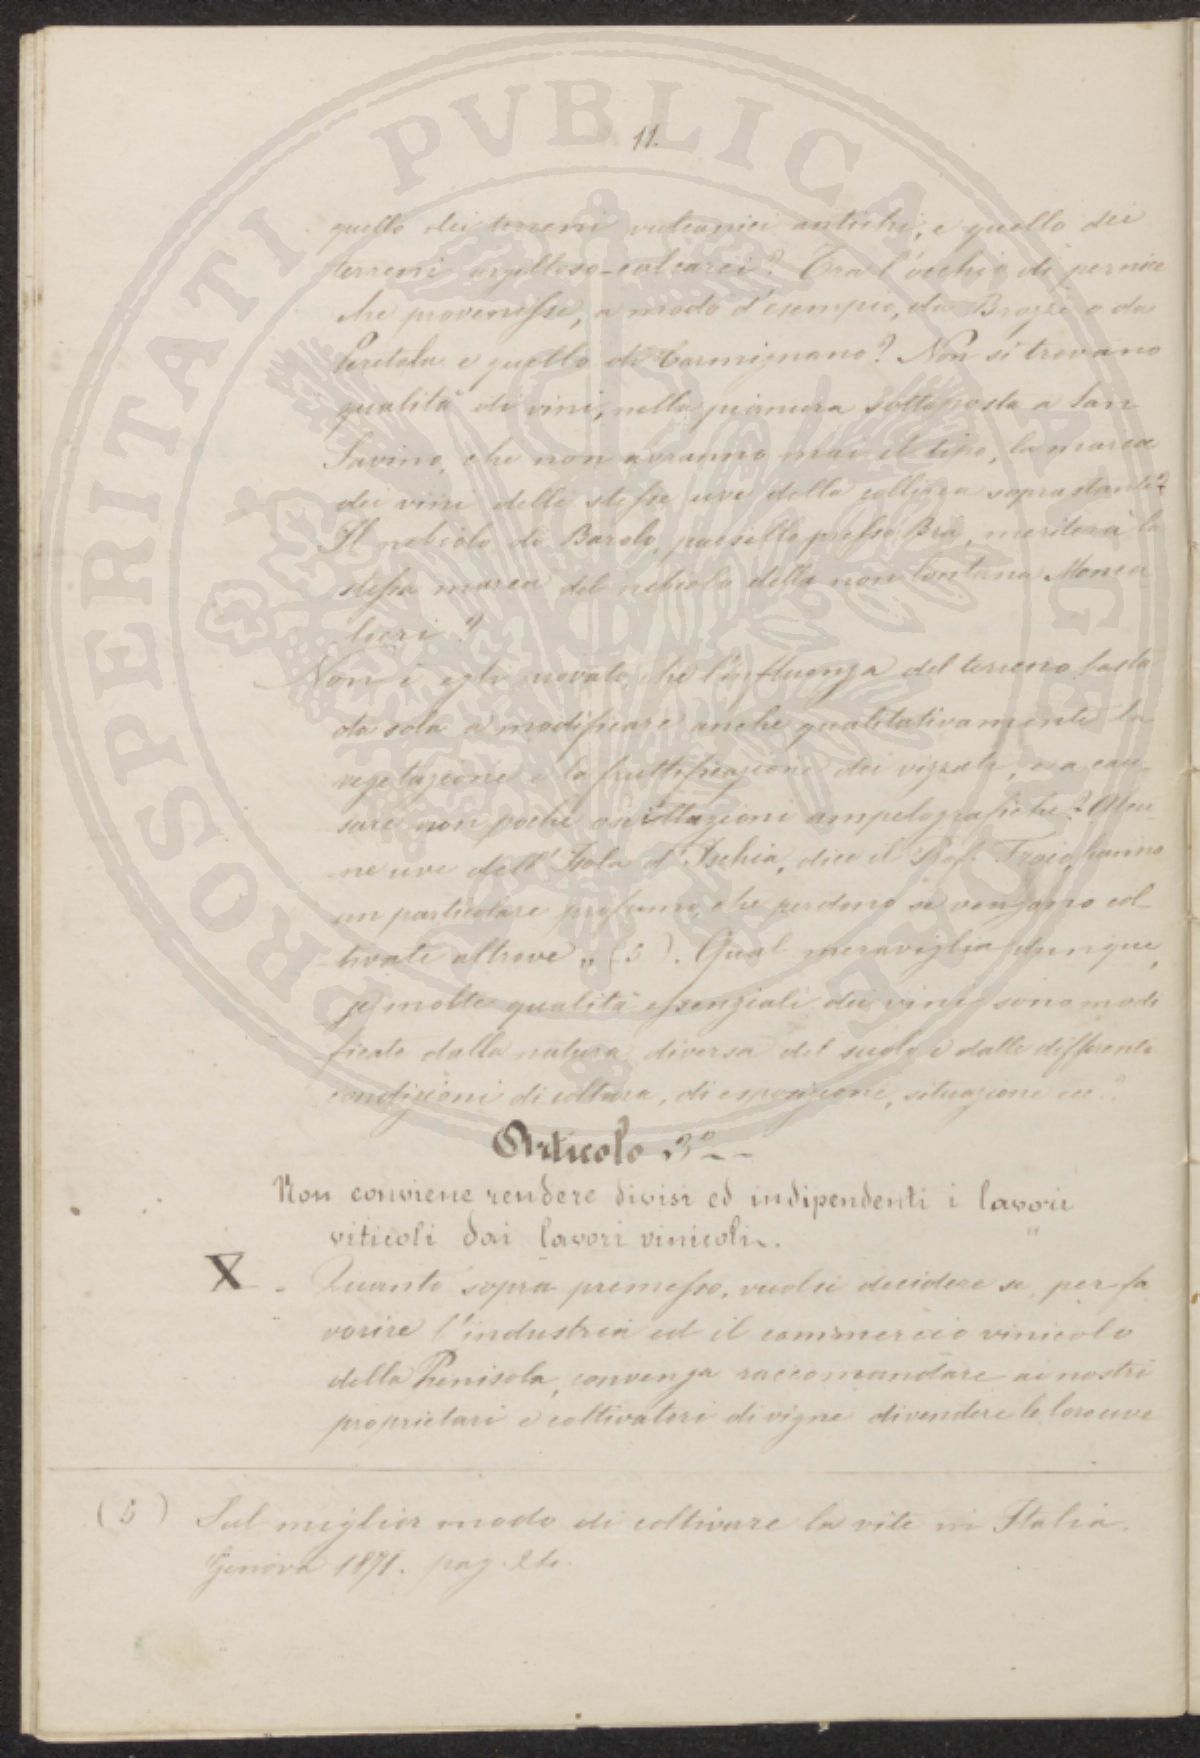 PROSPERITATI PUBLICAE AUGENDAE
11.
quello dei terreni vulcanici antichi, e quello dei
terreni argilloso-calcarei? Tra l'occhio di pernice
che provenisse, a modo d'esempio, da Brozzi o da
Peretola e quello di Carmignano? Non si trovano
qualità di vini, nella pianura sottoposta a San
Savino, che non avranno mai il tipo, la marca
dei vini delle stesse uve della collina soprastante?
Il nebiolo di Barolo, paesello presso Bra, meriterà la
stessa marca del nebiolo della non lontana Monca
lieri?
Non è egli provato, che l'influenza del terreno basta
da sola a modificare anche qualitativamente la
vegetazione e la fruttificazione dei vizzati, e a cau-
sare non poche oscillazioni ampelografiche? Alcu-
ne uve dell'Isola d'Ischia, dice il Prof. Froio, hanno
un particolare profumo, che perdono se vengano col-
tivate altrove „ (5). Qual meraviglia dunque,
se molte qualità essenziali dei vini sono modi
ficate dalla natura diversa del suolo e dalle differenti
condizioni di coltura, di esposizione, situazione ecc?
Articolo 3°
Non conviene rendere divisi ed indipendenti i lavori
viticoli dai lavori vinicoli.
X - Quanto sopra premesso, vuolsi decidere se, per fa
vorire l'industria ed il commercio vinicolo
della Penisola, convenga raccomandare ai nostri
proprietari e coltivatori di vigne di vendere le loro uve
(5) Sul miglior modo di coltivare la vite in Italia.
Genova 1871. pag. 24.